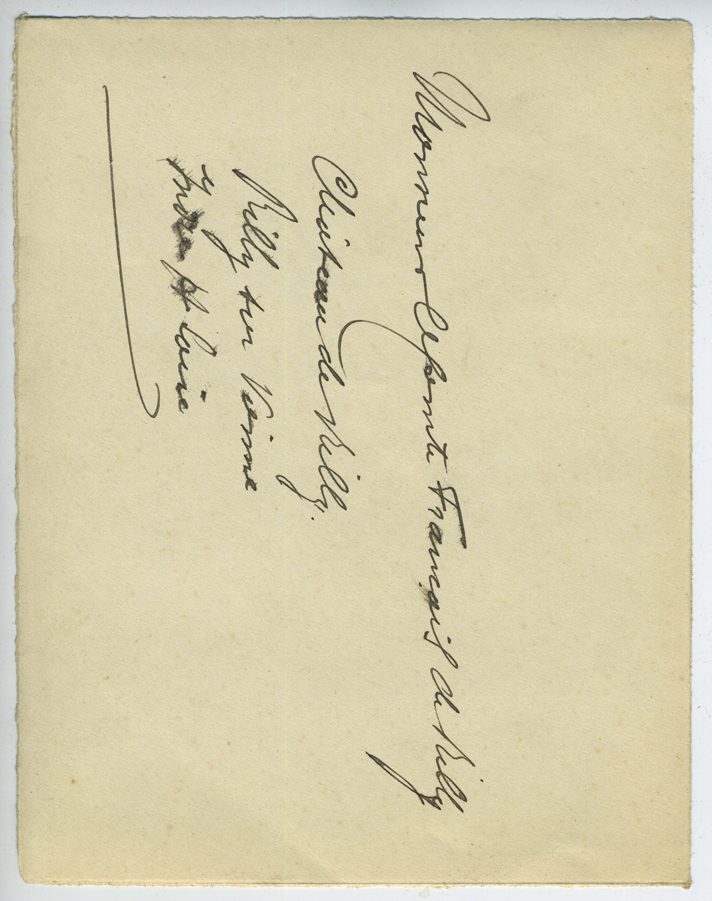 Monsieur le Comte François de Rilly
Château de Rilly.
Rilly sur Vienne
Indre et Loire